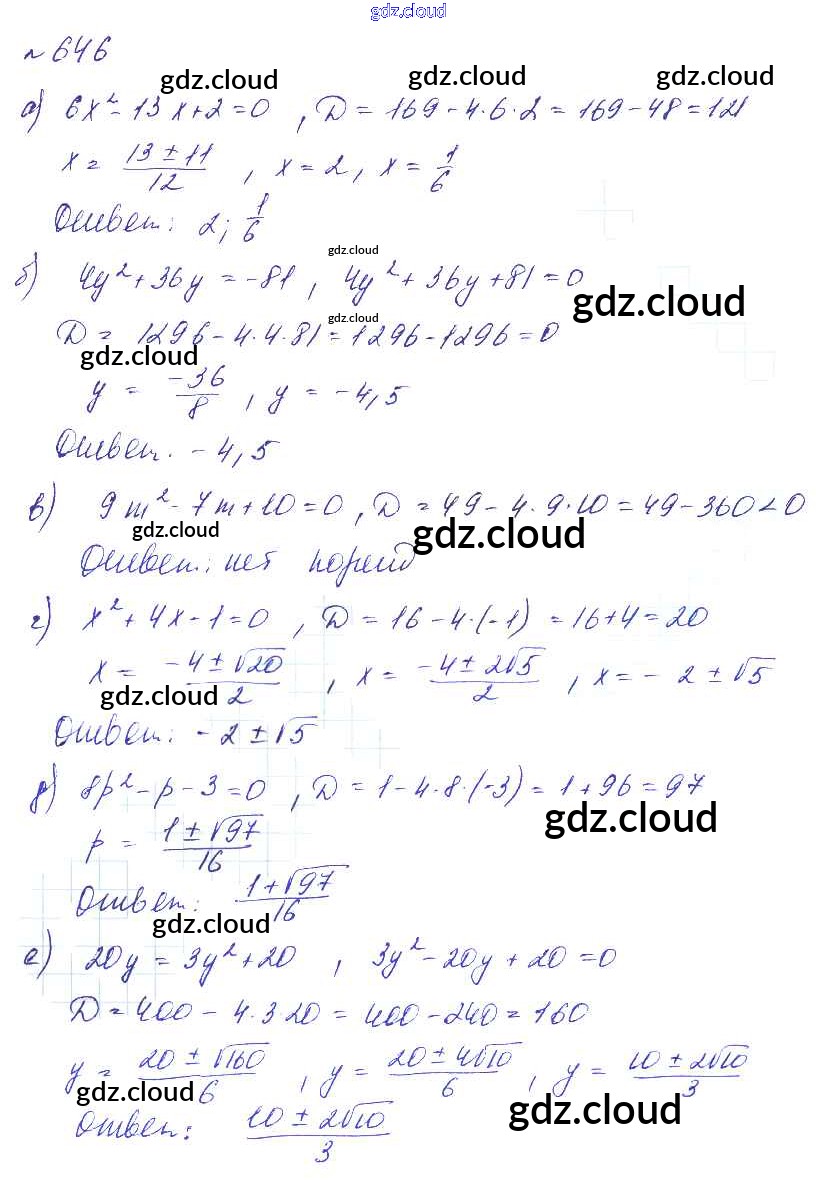 gdz.cloud
№ 646
gdz.cloud gdz.cloud gdz.cloud
а) 6x² - 13x + 2 = 0 , D = 169 - 4·6·2 = 169 - 48 = 121
x = (13 ± 11)/12 , x = 2, x = 1/6
Ответ: 2; 1/6
gdz.cloud
б) 4y² + 36y = -81 , 4y² + 36y + 81 = 0
gdz.cloud
D = 1296 - 4·4·81 = 1296 - 1296 = 0
gdz.cloud
gdz.cloud
y = -36/8 , y = -4,5
Ответ. -4,5
в) 9m² - 7m + 10 = 0 , D = 49 - 4·9·10 = 49 - 360 < 0
gdz.cloud gdz.cloud
Ответ: нет корней
г) x² + 4x - 1 = 0 , D = 16 - 4·(-1) = 16 + 4 = 20
x = (-4 ± √20)/2 , x = (-4 ± 2√5)/2 , x = - 2 ± √5
gdz.cloud
Ответ: -2 ± √5
д) 8p² - p - 3 = 0 , D = 1 - 4·8·(-3) = 1 + 96 = 97
gdz.cloud
p = (1 ± √97)/16
Ответ: (1 + √97)/16
gdz.cloud
е) 20y = 3y² + 20 , 3y² - 20y + 20 = 0
D = 400 - 4·3·20 = 400 - 240 = 160
y = (20 ± √160)/6 , y = (20 ± 4√10)/6 , y = (10 ± 2√10)/3
gdz.cloud gdz.cloud
Ответ: (10 ± 2√10)/3